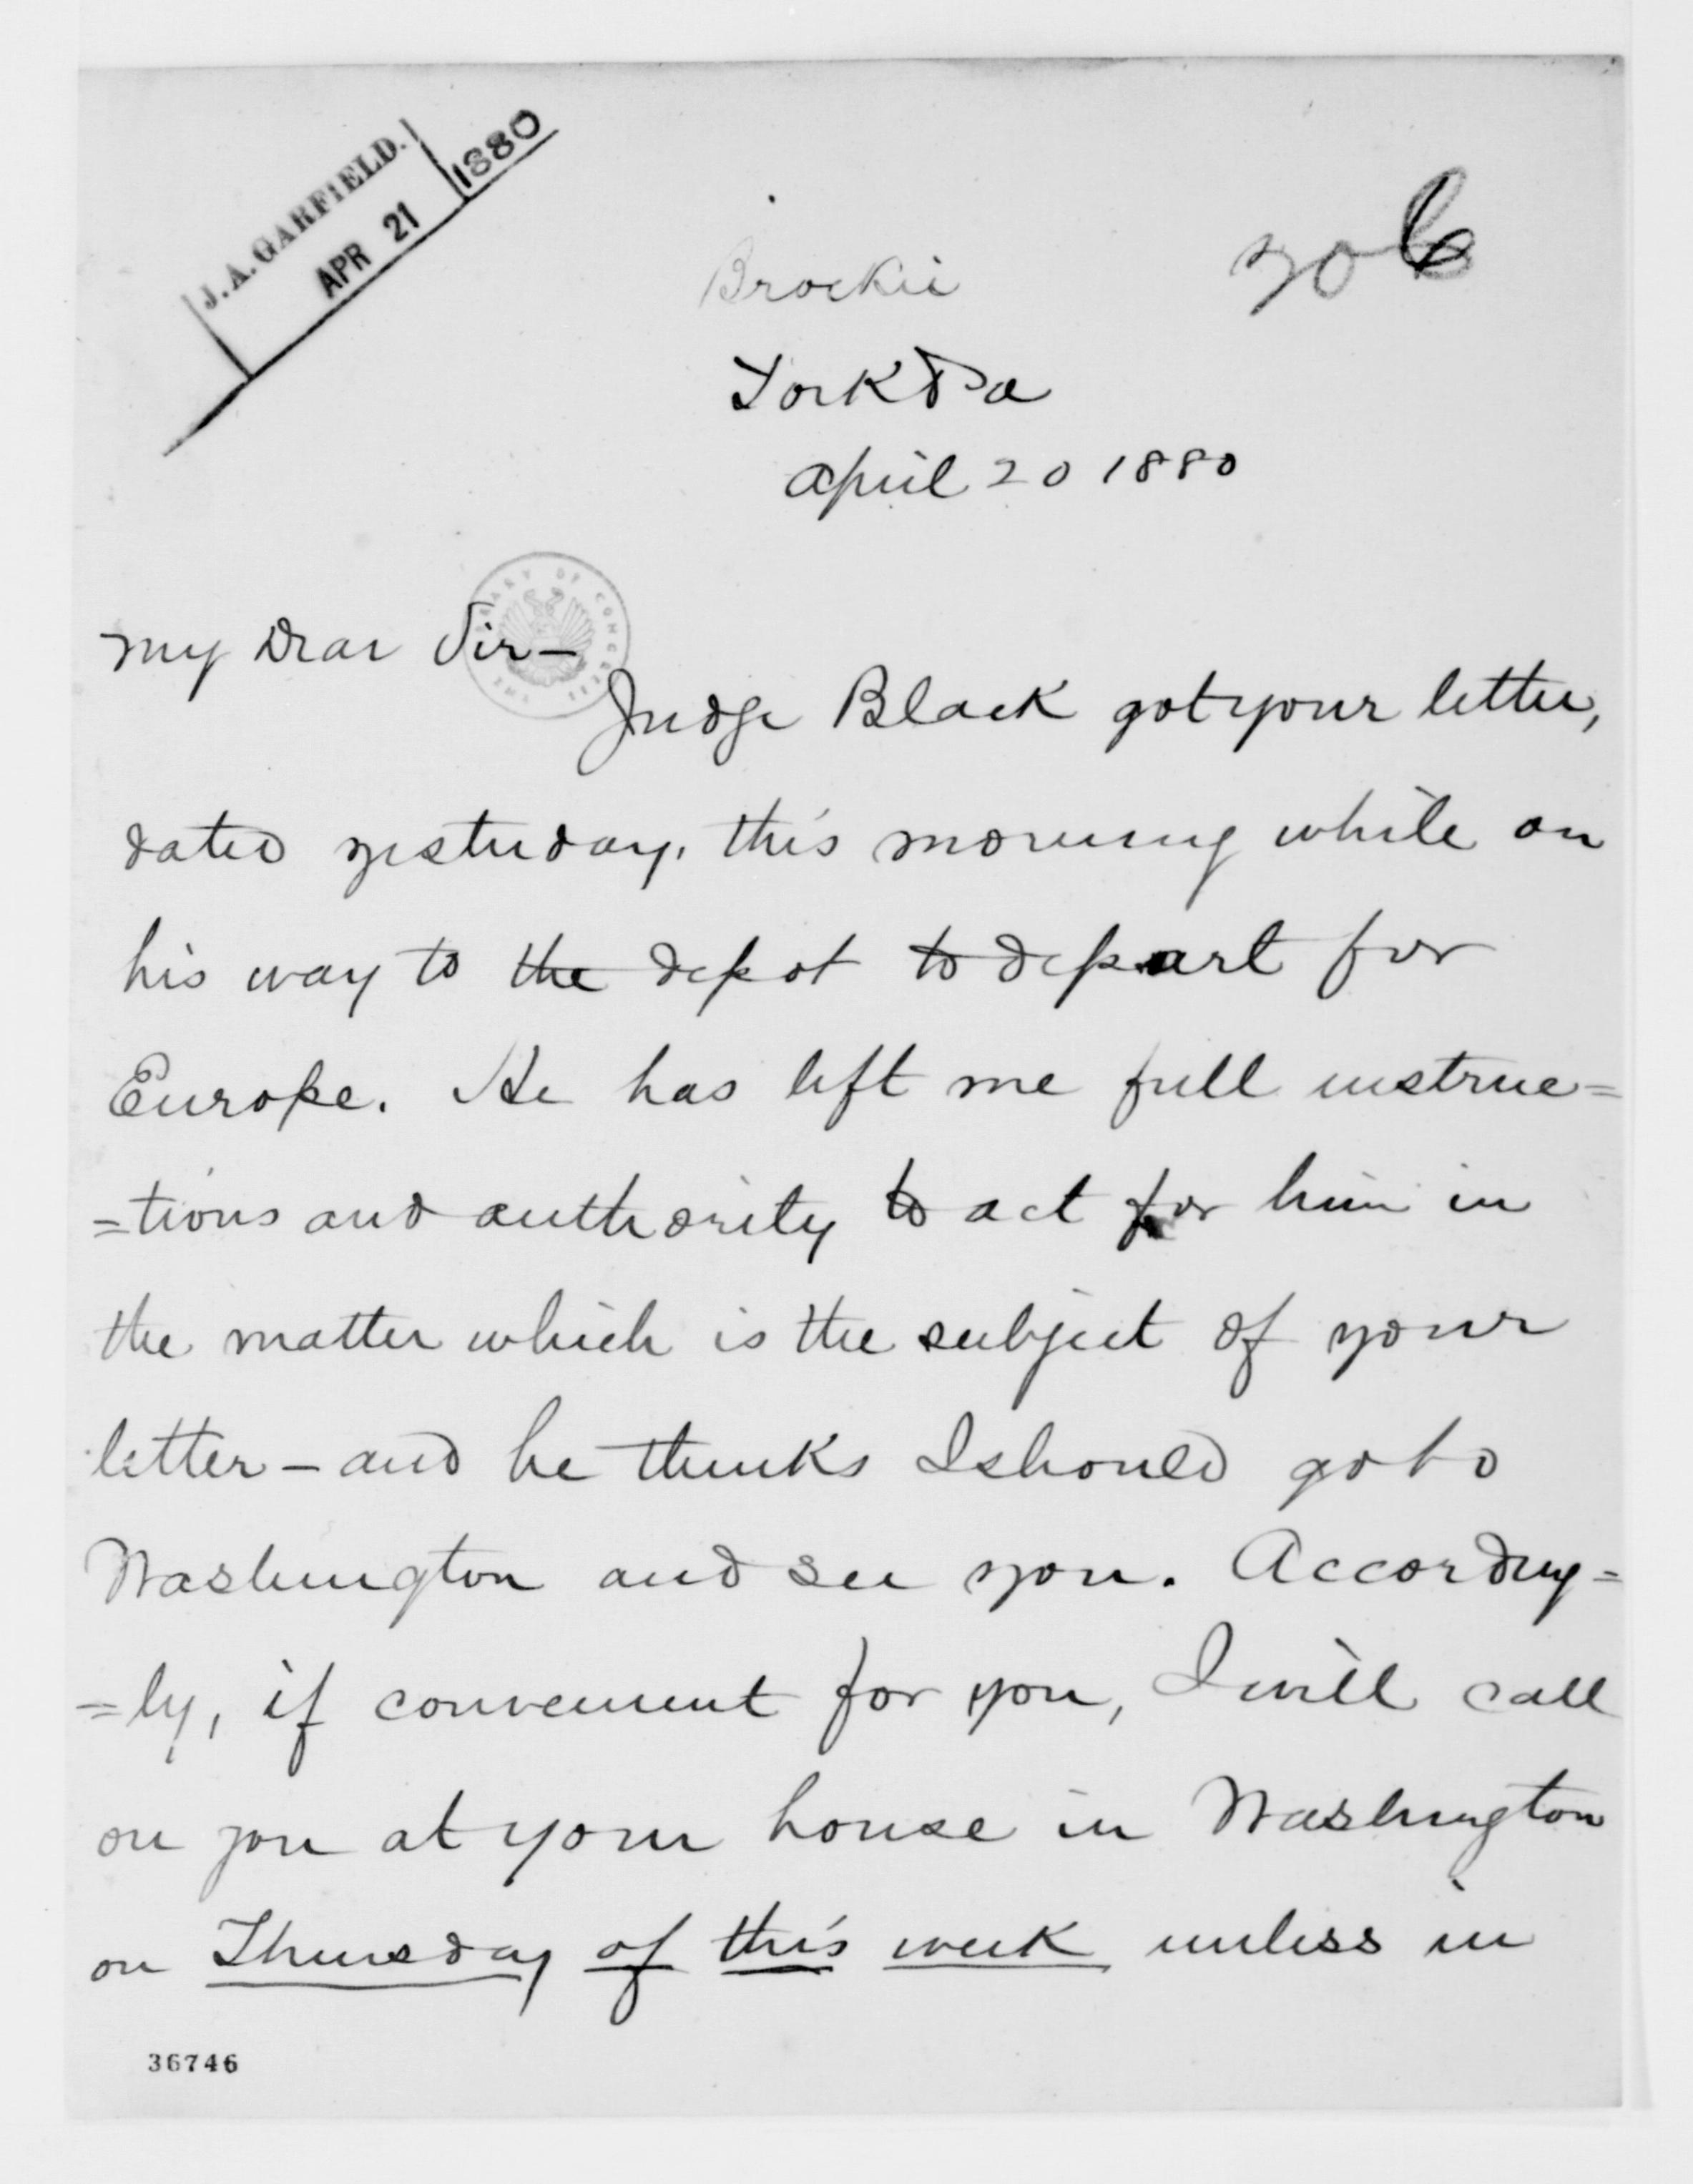 J. A. GARFIELD.
APR 21
1880
Brockie
York Pa
April 20 1880
THE LIBRARY OF CONGRESS
My Dear Sir—
Judge Black got your letter,
dated yesterday, this morning while on
his way to the depot to depart for
Europe. He has left me full instruc=
=tions and authority to act for him in
the matter which is the subject of your
letter — and he thinks I should go to
Washington and see you. According=
=ly, if convenient for you, I will call
on you at your house in Washington
on Thursday of this week unless in
36746